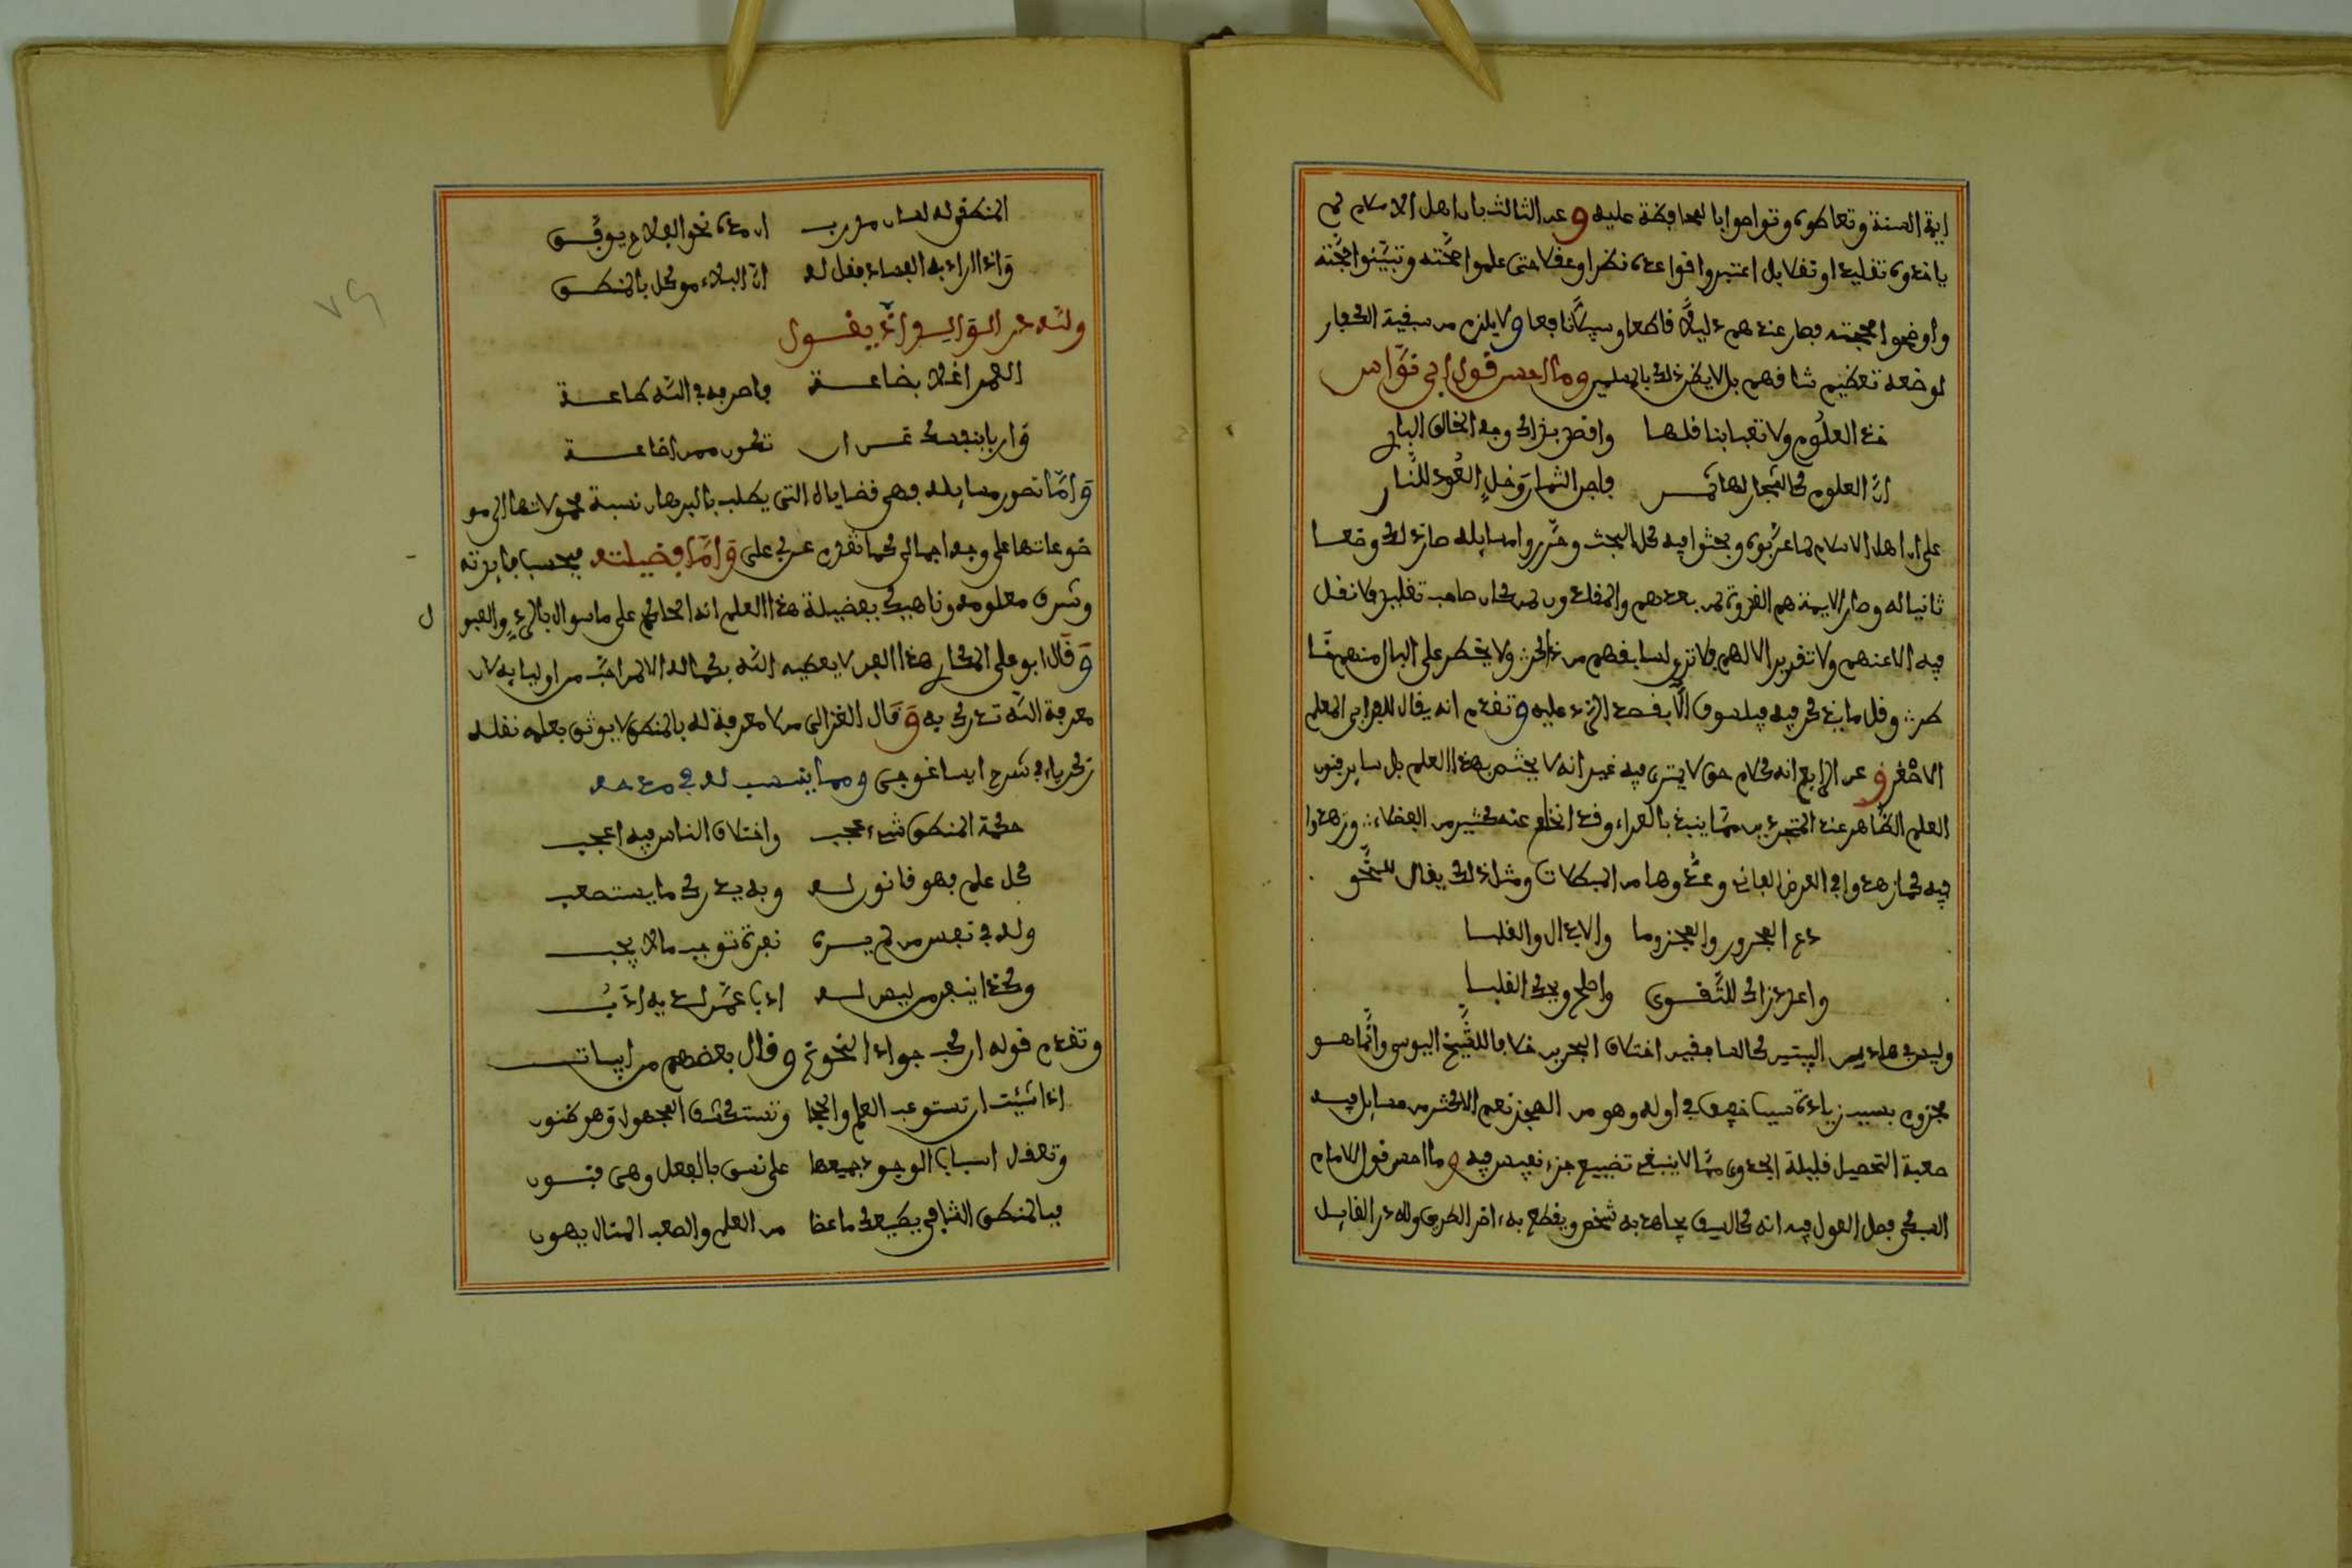 ايمة السنة وتعاطوه وتواصوا بالمحافظة عليه وعن الثالث بان اهل الاسلام لم
ياخذوه تقليدا وتفلا بل اعتبروا قواعده نظرا وعقلا حتى علموا صحته وتبينوا حجته
واوضحوا محجته فصار عندهم دليلا قاطعا وسيكانا فعا ولا يلزم من سبقية الكفار
لوضعه تعظيم شانهم بل لا يظن ذلك بالمسلمين وما احسن قول ابي نواس
خذ العلوم ولا تعبا بناقلها وافصد بذاك وجه الخالق الباري
ان العلوم كاشجار لها ثمر فاجن الثمار وخل العود للنار
على ان اهل الاسلام لما عربوه وبحثوا فيه كل البحث وحرروا مسايله صار ذلك وضعا
ثانيا له وصار الايمة هم القدوة لمن بعدهم والمقلدون لمن كان صاحب تقليد فلا نقل
فيه الا عنهم ولا تقرير الا لهم فلا ترى لسابقهم من ذكر ولا يخطر على البال منهم
وقل ما يذكر فيه فيلسوف الا بقصد الرد عليه وتقدم انه يقال للفرابي المعلم
الاصغر وعن الرابع انه كلام حق لا يمترى فيه غير انه لا يختص بهذا العلم بل ساير فنون
العلم الظاهر عند المتجردين مما ينبغي بالفراء وقد انخلع عنه كثير من الفضلاء وزهدوا
فيه كما زهدوا في العرض الفاني وعدوها من البطالات ومثل ذلك يقال للنحو
دع المجرور والمجزوما والابدال والقلبا
واعدد زادك للتقوى واصلح ويحك القلبا
وليس في هاذين البيتين كالسابقين اختلاف البحرين خلافا للشيخ اليوسي وانما هو
مجزوم بسبب زيادة سبب خفيف في اوله وهو من الهجز نعم الاكثر من مسايل فيه
صعبة التحصيل قليلة الجدوى مما لا ينبغي تضييع جزء نفيس فيه وما احسن قول الامام
السبكي فصل القول فيه انه كالسيف يجاهد به شخص ويقطع به ءاخر الطريق ولله در القايل
المنطق له لسان مدرب ان دعاه نحو الفلاح يوفق
واذا اراد به الفساد فقل له ان البلاء موكل بالمنطق
ولله در القايسي اذ يقول
العمر اغلا بضاعة فاصرفه في الله طاعة
واربا بنفسك عن ان تكون ممن اضاعه
واما تصور مسايله فهي قضاياه التي يطلب بالبرهان نسبة محمولاتها الى مو
ضوعاتها على وجه اجمالي كما تقدم واما فضيلته فبحسب فايدته
وشرف معلومه وناهيك بفضيلة هذا العلم انه الحاكم على ما سواه بالرد والقبو
ل
وقال ابو علي الكحار هذا الفن لا يعطيه الله بكماله الا لمن احب من اوليايه لان
معرفة الله تدرك به وقال الغزالي من لا معرفة له بالمنطق لا يوثق بعلمه نقله
زكرياء في شرح ايساغوجي ومما ينسب له في مدحه
حكمة المنطق شيء عجب واختلاف الناس فيه اعجب
كل علم فهو قانون له وبه يدرك ما يستصعب
وله في نفس من لم يره نفرة توجب مالا يجب
وكذا ينفر من ليس له ادب عمن لديه ادب
وتقدم قوله اركب جواد النحو ثم وقال بعضهم من ابيات
اذا شيت ان تستوعب العلم والحجا وتستكشف المجهول وهو ظنون
وتعقل اسباب الوجود جميعها على نسق بالفعل وهي فنون
فبالمنطق الشافي يطيعك ما عصا من العلم والصعب المنال يهون
٧٩